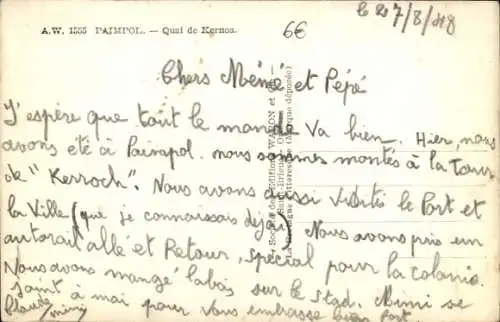 A.W. 1555 PAIMPOL. — Quai de Kernoa.
6€
le 27/8/48
Chers Mémé et Pépé
J'espère que tout le monde va bien. Hier, nous
avons été à Paimpol. nous sommes montés à la Tour
de "Kerroch". Nous avons aussi visités le Port et
la Ville (que je connaissais déjà). Nous avons pris un
autorail allé et Retour, spécial pour la colonie.
Nous avons mangé labois sur le stad. Mimi se
joint à moi pour vous embrasse bien fort
Claude mimi
Société des Éditions WARON et
Saint-Brieuc
La Bretagne Pittoresque (Marque déposée)